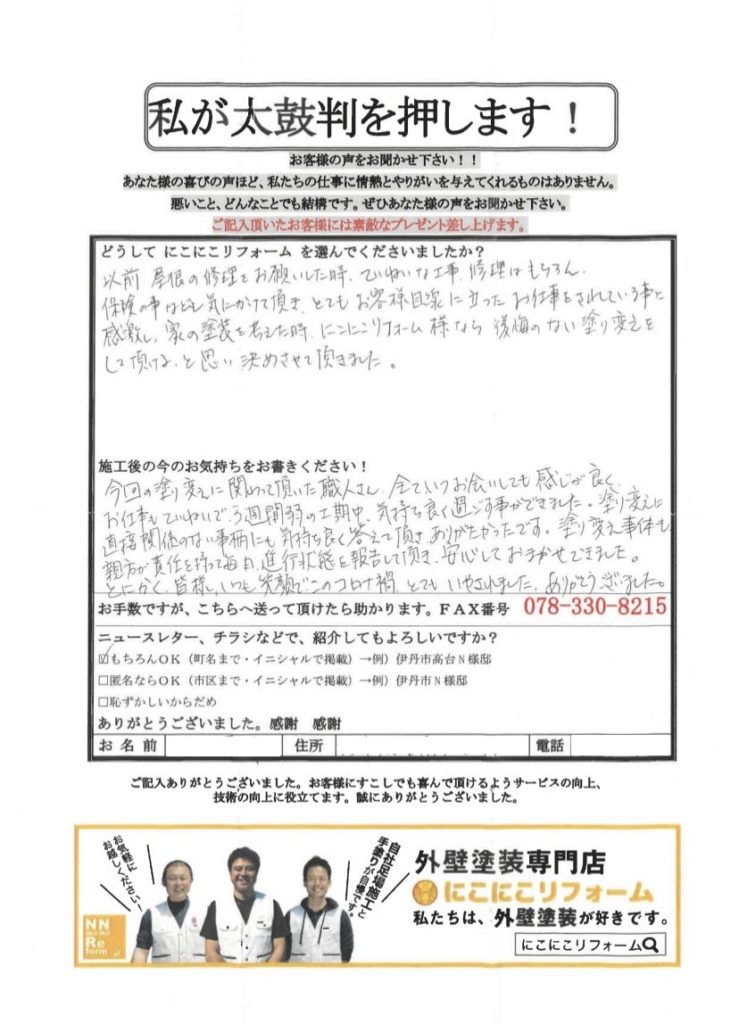 私が太鼓判を押します！
お客様の声をお聞かせ下さい！！
あなた様の喜びの声ほど、私たちの仕事に情熱とやりがいを与えてくれるものはありません。
悪いこと、どんなことでも結構です。ぜひあなた様の声をお聞かせ下さい。
ご記入頂いたお客様には素敵なプレゼント差し上げます。
どうして にこにこリフォーム を選んでくださいましたか？
以前 屋根の修理をお願いした時、ていねいな工事、修理はもちろん、
保険の事なども気にかけて頂き、とてもお客様目線に立ったお仕事をされている事に
感激し、家の塗装を考えた時、にこにこリフォーム様なら 後悔のない塗り変えを
して頂ける、と思い 決めさせて頂きました。
施工後の今のお気持ちをお書きください！
今回の塗り変えに関わって頂いた職人さん、全ていつお会いしても感じが良く、
お仕事もていねいで、3週間弱の工期中、気持ち良く過ごす事ができました。塗り変えに
直接関係のない事柄にも気持ち良く答えて頂き、ありがたかったです。塗り変え事体も
親方が責任を持って毎日、進行状態を報告して頂き、安心しておまかせできました。
とにかく、皆様、いつも笑顔でこのコロナ禍、とてもいやされました。ありがとうございました。
お手数ですが、こちらへ送って頂けたら助かります。ＦＡＸ番号 078-330-8215
ニュースレター、チラシなどで、紹介してもよろしいですか？
☑もちろんＯＫ（町名まで・イニシャルで掲載）→例）伊丹市高台Ｎ様邸
□匿名ならＯＫ（市区まで・イニシャルで掲載）→例）伊丹市Ｎ様邸
□恥ずかしいからだめ
ありがとうございました。感謝　感謝
お名前 住所 電話
ご記入ありがとうございました。お客様にすこしでも喜んで頂けるようサービスの向上、
技術の向上に役立てます。誠にありがとうございました。
お気軽に
お越しください！
自社足場施工と
手塗りが自慢です。
外壁塗装専門店
にこにこリフォーム
私たちは、外壁塗装が好きです。
にこにこリフォーム
NN
Re
form